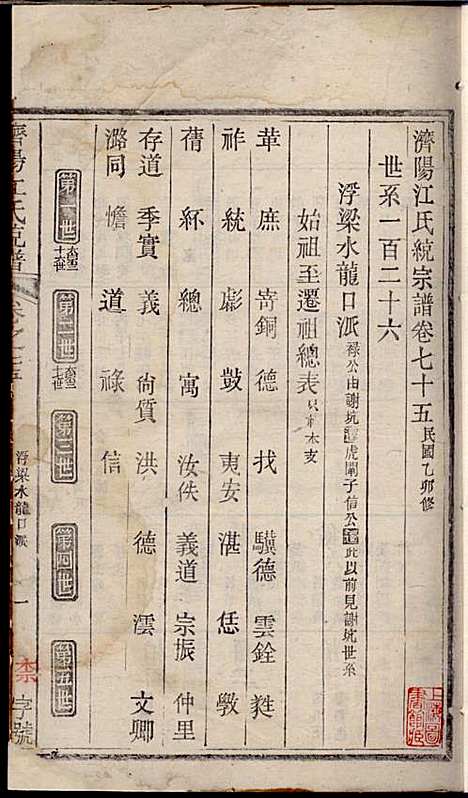 濟陽江氏統宗譜卷七十五 民國乙卯修
世系一百二十六
浮梁水龍口派 祿公由謝坑遷虎閘子信公遷此以前見謝坑世系
始祖至遷祖總表 只本支
革 庶 嵜銅 德 找 驥德 雲銓 甤
祚 統 彪 敱 夷安 湛 恁 斆
蒨 紑 總 寓 汝佚 義道 宗振 仲里
存道 季實 義 尙質 洪 德 澐 文卿
潞同 憺 道 祿 信
第一世
第二世
第三世
第四世
第五世
濟陽江氏宗譜
卷之七十五
浮梁水龍口派
一
字號